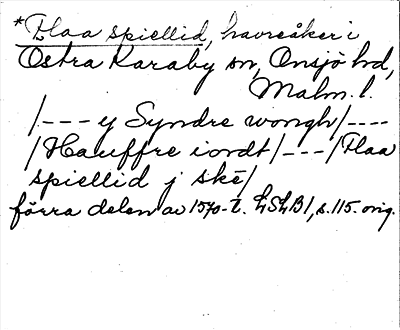 *Flaa spiellid, havreåker i
Östra Karaby sn, Onsjö hd,
Malm. l.
/--- y Syndre wongh/----
/Hauffre iordt/---/Flaa
spiellid j skē/
förra delen av 1570-t. LSLB1, s. 115. orig.